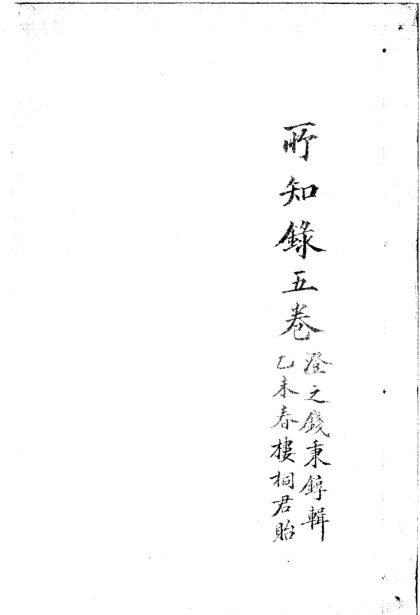 所知錄五卷
澄之錢秉鐏輯
乙未春樓桐君貽